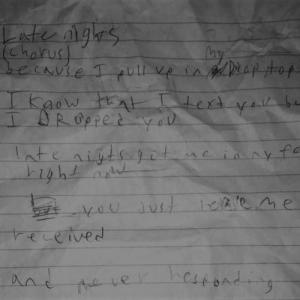 Late nights
(chorus)
because I pull up in my Drop top
I Know that I text you bu
I DRopped you
late nigts got me in my fe
right now
you just leave me
received
and never responding